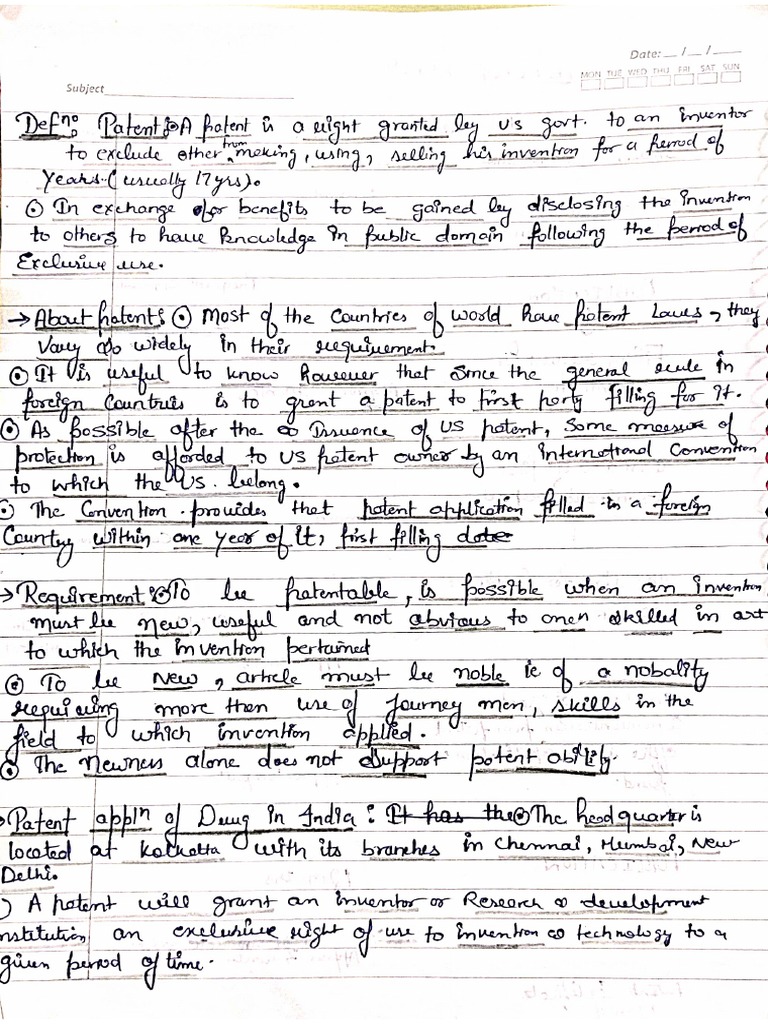 Date: __/__/____
MON TUE WED THU FRI SAT SUN
Subject
Defn: Patent: A patent is a right granted by US govt. to an inventor
to exclude other from making, using, selling his invention for a period of
years. (usually 17 yrs).
⊙ In exchange for benefits to be gained by disclosing the invention
to others to have knowledge in public domain following the period of
Exclusive use.
→ About patent: ⊙ Most of the Countries of world have patent Laws, they
vary so widely in their requirement.
⊙ It is useful to know however that since the general rule in
foreign Countries is to grant a patent to first party filling for it.
⊙ As possible after the Issuence of US patent, Some measure of
protection is afforded to US patent owner by an International Convention
to which the US. belong.
⊙ The Convention provides that patent application filled in a foreign
Country within one year of it, first filling date
→ Requirement: ⊙ To be patentable, is possible when an invention
must be new, useful and not abvious to one skilled in art
to which the invention pertained
⊙ To be New, article must be noble ie of a nobality
requiring more then use of Journey men, skills in the
field to which invention applied.
⊙ The Newness alone does not Support patent ability.
→ Patent appln of Drug in India: It has the ⊙ The headquarter is
located at Kolkatta with its branches in Chennai, Mumbai, New
Delhi.
) A patent will grant an inventor or Research & development
nstitution, an exclusive right of use to invention & technology to a
given period of time.